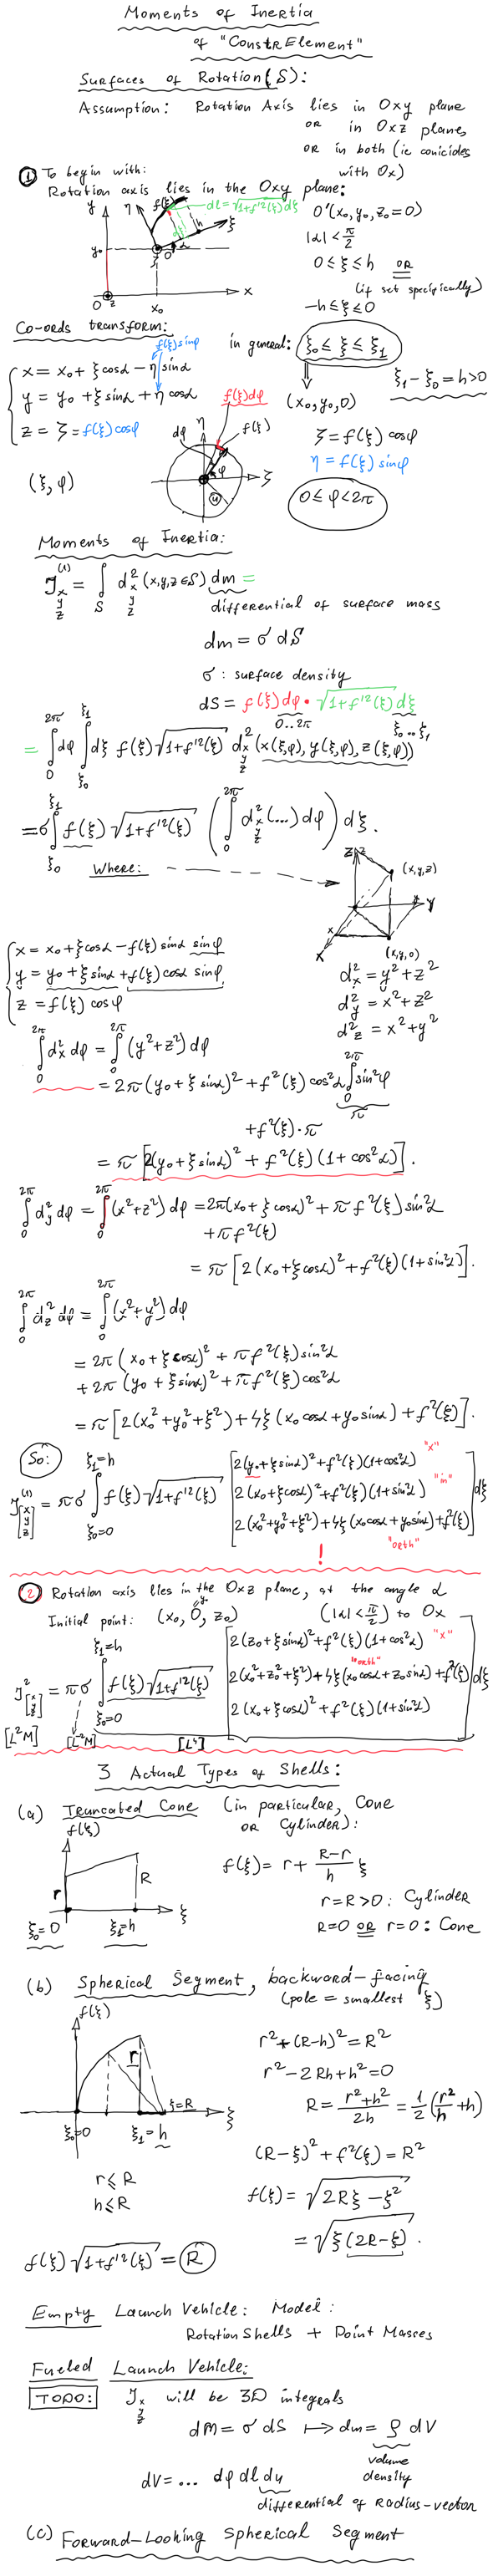 Moments of Inertia
of "ConstrElement"
Surfaces of Rotation (S):
Assumption: Rotation Axis lies in Oxy plane
OR in Oxz plane,
OR in both (ie conicides
with Ox)
① To begin with:
Rotation axis lies in the Oxy plane:
y η f(ξ) dl = √(1+f'²(ξ)) dξ
h ξ
dξ
O'(x₀, y₀, z₀=0)
y₀ O' α
|α| < π/2
0 ≤ ξ ≤ h OR
(if set specifically)
O z x₀ x
-h ≤ ξ ≤ 0
Co-ords transform:
f(ξ) sinφ
in general: ξ₀ ≤ ξ ≤ ξ₁
x = x₀ + ξ cosα - η sinα
y = y₀ + ξ sinα + η cosα
z = ζ = f(ξ) cosφ
ξ₁ - ξ₀ = h > 0
(x₀, y₀, 0)
f(ξ)dφ
η
dφ f(ξ)
φ ζ
ζ = f(ξ) cosφ
η = f(ξ) sinφ
(ξ, φ)
0 ≤ φ < 2π
Moments of Inertia:
J⁽¹⁾ x y z = ∫ S d² x y z (x,y,z ∈ S) dm =
differential of surface mass
dm = σ dS
σ : surface density
dS = f(ξ) dφ • √(1+f'²(ξ)) dξ
0..2π ξ₀..ξ₁
= ∫₀^2π dφ ∫ξ₀^ξ₁ dξ f(ξ) √(1+f'²(ξ)) d² x y z (x(ξ,φ), y(ξ,φ), z(ξ,φ))
= σ ∫ξ₀^ξ₁ f(ξ) √(1+f'²(ξ)) ( ∫₀^2π d² x y z (...) dφ ) dξ.
Where:
z z (x,y,z)
y y
x x (x,y,0)
x = x₀ + ξ cosα - f(ξ) sinα sinφ
y = y₀ + ξ sinα + f(ξ) cosα sinφ
z = f(ξ) cosφ
d²x = y² + z²
d²y = x² + z²
d²z = x² + y²
∫₀^2π d²x dφ = ∫₀^2π (y² + z²) dφ
= 2π (y₀ + ξ sinα)² + f²(ξ) cos²α ∫₀^2π sin²φ
π
+ f²(ξ) · π
= π [2(y₀ + ξ sinα)² + f²(ξ) (1 + cos²α)].
∫₀^2π d²y dφ = ∫₀^2π (x² + z²) dφ = 2π(x₀ + ξ cosα)² + π f²(ξ) sin²α
+ π f²(ξ)
= π [2 (x₀ + ξ cosα)² + f²(ξ) (1 + sin²α)].
∫₀^2π d²z dφ = ∫₀^2π (x² + y²) dφ
= 2π (x₀ + ξ cosα)² + π f²(ξ) sin²α
+ 2π (y₀ + ξ sinα)² + π f²(ξ) cos²α
= π [2(x₀² + y₀² + ξ²) + 4ξ (x₀ cosα + y₀ sinα) + f²(ξ)].
So:
J⁽¹⁾ [x y z] = πσ ∫ξ₀=0^ξ₁=h f(ξ) √(1+f'²(ξ))
2(y₀ + ξ sinα)² + f²(ξ)(1 + cos²α) "x"
2(x₀ + ξ cosα)² + f²(ξ)(1 + sin²α) "in"
2(x₀² + y₀² + ξ²) + 4ξ (x₀ cosα + y₀ sinα) + f²(ξ) dξ
"orth"
!
② Rotation axis lies in the Oxz plane, at the angle α
Initial point: (x₀, 0, z₀) (|α| < π/2) to Ox
J² [x y z] = πσ ∫ξ₀=0^ξ₁=h f(ξ) √(1+f'²(ξ))
2(z₀ + ξ sinα)² + f²(ξ)(1 + cos²α) "x"
"orth"
2(x₀² + z₀² + ξ²) + 4ξ (x₀ cosα + z₀ sinα) + f²(ξ) dξ
2(x₀ + ξ cosα)² + f²(ξ)(1 + sin²α)
[L²M] [L⁻²M] [L⁴]
3 Actual Types of Shells:
(a) Truncated Cone (in particular, Cone
OR Cylinder):
f(ξ)
f(ξ) = r + (R-r)/h ξ
r R
r = R > 0 : Cylinder
R=0 OR r=0 : Cone
ξ₀=0 ξ₁=h ξ
(b) Spherical Segment, backward-facing
(pole = smallest ξ)
f(ξ)
r² + (R-h)² = R²
r² - 2Rh + h² = 0
r
R = (r²+h²)/2h = 1/2 (r²/h + h)
ξ=R
ξ₀=0 ξ₁=h ξ
(R-ξ)² + f²(ξ) = R²
r ≤ R
h ≤ R
f(ξ) = √(2Rξ - ξ²)
= √(ξ (2R-ξ)).
f(ξ) √(1+f'²(ξ)) = R
Empty Launch Vehicle: Model:
Rotation Shells + Point Masses
Fueled Launch Vehicle:
TODO: J x y z will be 3D integrals
dm = σ dS ↦ dm = ρ dV
volume
density
dV = ... dφ dl du
differential of Radius-vector
(c) Forward-Looking Spherical Segment